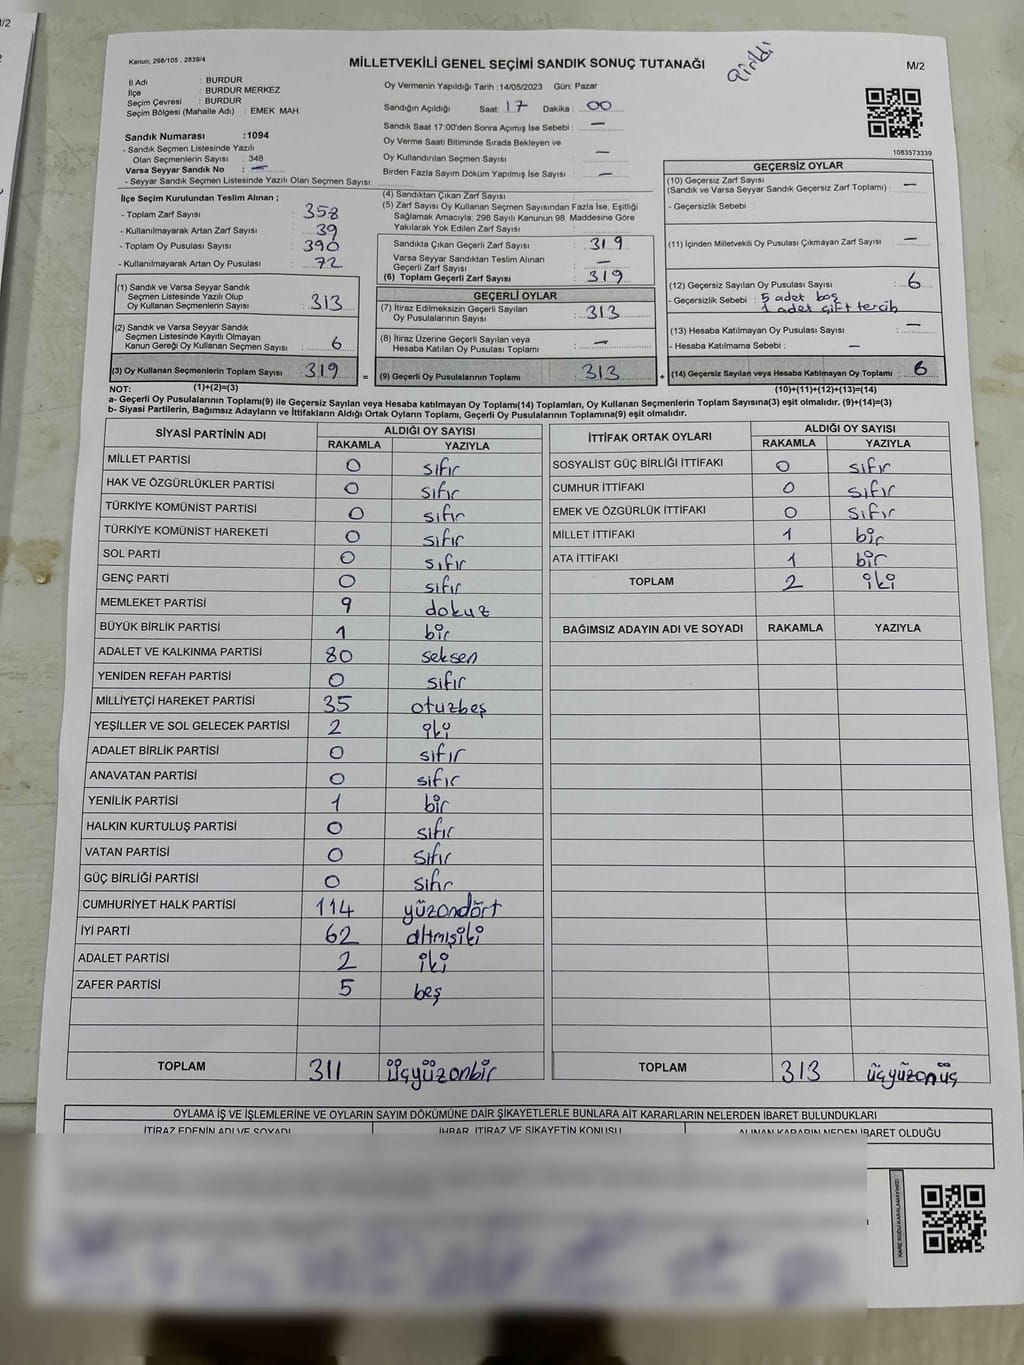 Kanun; 298/105 , 2839/4
MİLLETVEKİLİ GENEL SEÇİMİ SANDIK SONUÇ TUTANAĞI
Girildi
M/2
İl Adı : BURDUR
İlçe : BURDUR MERKEZ
Seçim Çevresi : BURDUR
Seçim Bölgesi (Mahalle Adı) : EMEK MAH.
Oy Vermenin Yapıldığı Tarih :14/05/2023 Gün: Pazar
Sandığın Açıldığı Saat: 17 Dakika : 00
Sandık Saat 17:00'den Sonra Açımış İse Sebebi : —
Oy Verme Saati Bitiminde Sırada Bekleyen ve
Oy Kullandırılan Seçmen Sayısı : —
Birden Fazla Sayım Döküm Yapılmış İse Sayısı : —
1083573339
Sandık Numarası :1094
- Sandık Seçmen Listesinde Yazılı
Olan Seçmenlerin Sayısı : 348
Varsa Seyyar Sandık No : —
- Seyyar Sandık Seçmen Listesinde Yazılı Olan Seçmen Sayısı:
İlçe Seçim Kurulundan Teslim Alınan ;
- Toplam Zarf Sayısı : 358
- Kullanılmayarak Artan Zarf Sayısı : 39
- Toplam Oy Pusulası Sayısı : 390
- Kullanılmayarak Artan Oy Pusulası : 72
(1) Sandık ve Varsa Seyyar Sandık
Seçmen Listesinde Yazılı Olup
Oy Kullanan Seçmenlerin Sayısı : 313
(2) Sandık ve Varsa Seyyar Sandık
Seçmen Listesinde Kayıtlı Olmayan
Kanun Gereği Oy Kullanan Seçmen Sayısı : 6
(3) Oy Kullanan Seçmenlerin Toplam Sayısı : 319
(1)+(2)=(3)
(4) Sandıktan Çıkan Zarf Sayısı
(5) Zarf Sayısı Oy Kullanan Seçmen Sayısından Fazla İse, Eşitliği
Sağlamak Amacıyla; 298 Sayılı Kanunun 98. Maddesine Göre
Yakılarak Yok Edilen Zarf Sayısı :
Sandıkta Çıkan Geçerli Zarf Sayısı : 319
Varsa Seyyar Sandıktan Teslim Alınan
Geçerli Zarf Sayısı : —
(6) Toplam Geçerli Zarf Sayısı : 319
GEÇERLİ OYLAR
(7) İtiraz Edilmeksizin Geçerli Sayılan
Oy Pusulalarının Sayısı : 313
(8) İtiraz Üzerine Geçerli Sayılan veya
Hesaba Katılan Oy Pusulası Toplamı : —
= (9) Geçerli Oy Pusulalarının Toplamı : 313 +
GEÇERSİZ OYLAR
(10) Geçersiz Zarf Sayısı
(Sandık ve Varsa Seyyar Sandık Geçersiz Zarf Toplamı) : —
- Geçersizlik Sebebi :
(11) İçinden Milletvekili Oy Pusulası Çıkmayan Zarf Sayısı : —
(12) Geçersiz Sayılan Oy Pusulası Sayısı : 6
- Geçersizlik Sebebi : 5 adet boş
1 adet çift tercih
(13) Hesaba Katılmayan Oy Pusulası Sayısı : —
- Hesaba Katılmama Sebebi : —
(14) Geçersiz Sayılan veya Hesaba Katılmayan Oy Toplamı : 6
(10)+(11)+(12)+(13)=(14)
NOT:
a- Geçerli Oy Pusulalarının Toplamı(9) ile Geçersiz Sayılan veya Hesaba katılmayan Oy Toplamı(14) Toplamları, Oy Kullanan Seçmenlerin Toplam Sayısına(3) eşit olmalıdır. (9)+(14)=(3)
b- Siyasi Partilerin, Bağımsız Adayların ve İttifakların Aldığı Ortak Oyların Toplamı, Geçerli Oy Pusulalarının Toplamına(9) eşit olmalıdır.
SİYASİ PARTİNİN ADI ALDIĞI OY SAYISI
RAKAMLA YAZIYLA
MİLLET PARTİSİ 0 sıfır
HAK VE ÖZGÜRLÜKLER PARTİSİ 0 sıfır
TÜRKİYE KOMÜNİST PARTİSİ 0 sıfır
TÜRKİYE KOMÜNİST HAREKETİ 0 sıfır
SOL PARTİ 0 sıfır
GENÇ PARTİ 0 sıfır
MEMLEKET PARTİSİ 9 dokuz
BÜYÜK BİRLİK PARTİSİ 1 bir
ADALET VE KALKINMA PARTİSİ 80 seksen
YENİDEN REFAH PARTİSİ 0 sıfır
MİLLİYETÇİ HAREKET PARTİSİ 35 otuzbeş
YEŞİLLER VE SOL GELECEK PARTİSİ 2 iki
ADALET BİRLİK PARTİSİ 0 sıfır
ANAVATAN PARTİSİ 0 sıfır
YENİLİK PARTİSİ 1 bir
HALKIN KURTULUŞ PARTİSİ 0 sıfır
VATAN PARTİSİ 0 sıfır
GÜÇ BİRLİĞİ PARTİSİ 0 sıfır
CUMHURİYET HALK PARTİSİ 114 yüzondört
İYİ PARTİ 62 altmışiki
ADALET PARTİSİ 2 iki
ZAFER PARTİSİ 5 beş
TOPLAM 311 üçyüzonbir
İTTİFAK ORTAK OYLARI ALDIĞI OY SAYISI
RAKAMLA YAZIYLA
SOSYALİST GÜÇ BİRLİĞİ İTTİFAKI 0 sıfır
CUMHUR İTTİFAKI 0 sıfır
EMEK VE ÖZGÜRLÜK İTTİFAKI 0 sıfır
MİLLET İTTİFAKI 1 bir
ATA İTTİFAKI 1 bir
TOPLAM 2 iki
BAĞIMSIZ ADAYIN ADI VE SOYADI RAKAMLA YAZIYLA
TOPLAM 313 üçyüzonüç
OYLAMA İŞ VE İŞLEMLERİNE VE OYLARIN SAYIM DÖKÜMÜNE DAİR ŞİKAYETLERLE BUNLARA AİT KARARLARIN NELERDEN İBARET BULUNDUKLARI
İTİRAZ EDENİN ADI VE SOYADI İHBAR, İTİRAZ VE ŞİKAYETİN KONUSU ALINAN KARARIN NEDEN İBARET OLDUĞU
KARE KODU KARALAMAYINIZ!